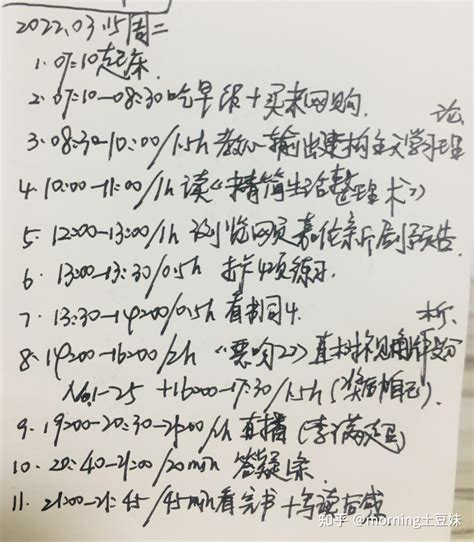 2022.03.15周二
1. 07:10起床.
2. 07:10-08:30吃早饭+买菜网购.
3. 08:30-10:00/1.5h 教心输出建构主义学习理论
4. 10:00-11:00/1h 读《精简生活整理术》
5. 12:00-13:00/1h 浏览网页嘉佳新剧预告.
6. 13:00-13:30/0.5h 4项练习.
7. 13:30-14:00/0.5h 看 4.
8. 14:00-16:00/2h 《 2》直 视角评分析.
No.1-25 +16:00-17:30/1.5h(奖励自己).
9. 19:00-20:30-21:00/ h 直播(李 超).
10. 20:40-21:00/20min 答疑
11. 21:00-21:45/45min看完书+写读后感
知乎 @morning土豆妹